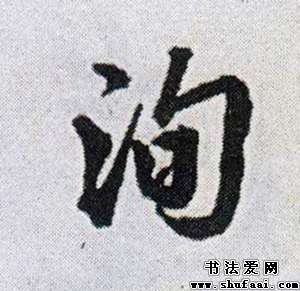 洵
书法爱网
www.shufaai.com